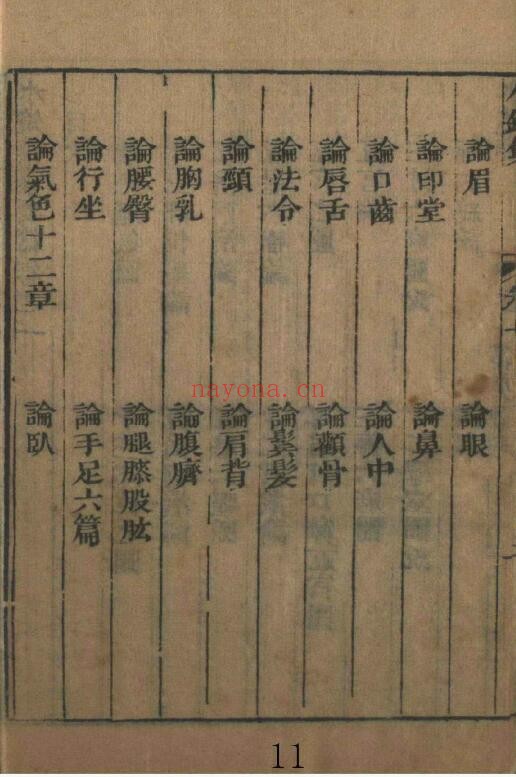 論眉 論眼
論印堂 論鼻
論口齒 論人中
論唇舌 論顴骨
論法令 論鬚髮
論頸 論肩背
論胸乳 論腹臍
論腰臀 論腿膝股肱
論行坐 論手足六篇
論氣色十二章 論臥
nayona.cn
11